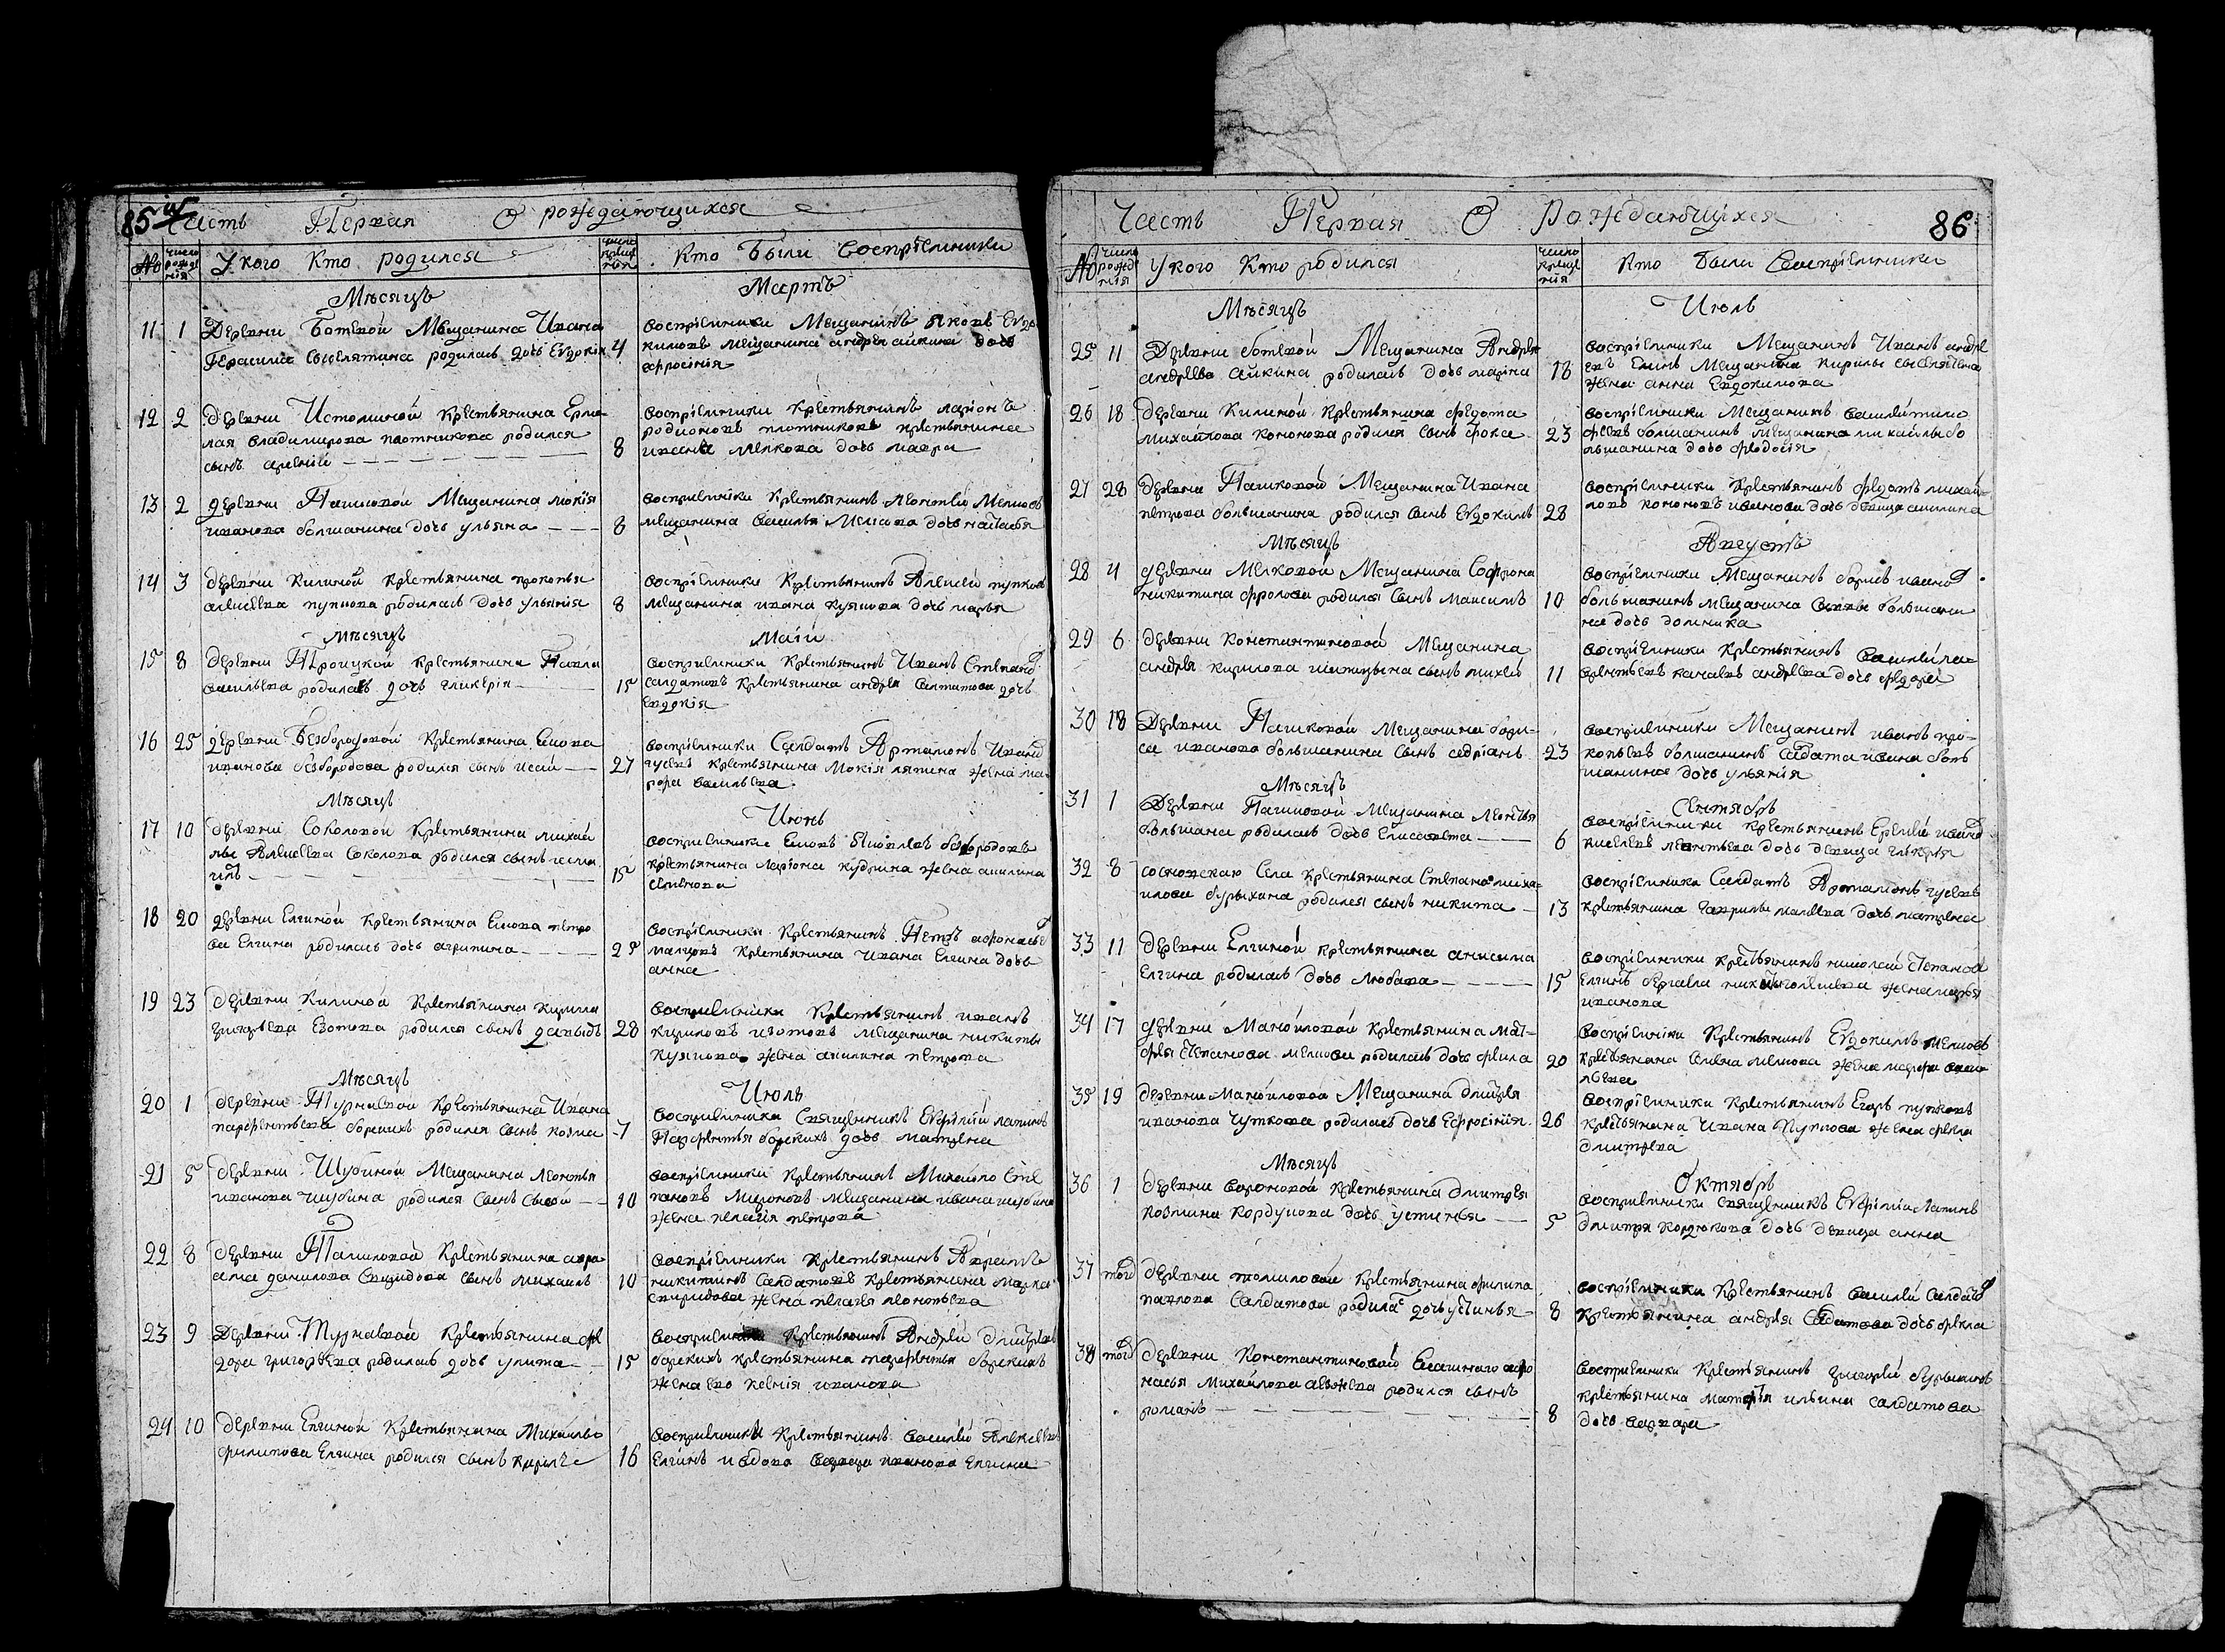 85 Часть Первая О рождающихся
№ число рождения У кого Кто родился число крещения Кто Были Восприемники
Месяцъ Мартъ
11 1 Деревни Ботевой Мещанина Ивана
Герасима родилась дочь Евдокия 4
воспріемники Мещанинъ Яковъ Евдо
кимовъ мещанина андрея айкина дочь
ефросінія
12 2 деревни Истоминой крестьянина Ермо
лая владимирова плотникова родился
сынъ арсеній 8
воспріемники крестьянинъ ларіонъ
родионовъ плотниковъ крестьянина
ивана мелкова дочь мавра
13 2 деревни Пашковой Мещанина мокія
иванова болшанина дочь ульяна 8
воспріемники Крестьянинъ Леонтей Мелковъ
мещанина василья Мелкова дочь настасья
14 3 деревни Килиной крестьянина прокопья
алексеева пупкова родилась дочь ульянія 8
воспріемники Крестьянинъ Алексей пупковъ
мещанина ивана дочь марья
месяцъ Маій
15 8 деревни Троицкой крестьянина Павла
васильева родилась дочь гликерія 15
воспріемники крестьянинъ Иванъ Степанов
салдатовъ крестьянина андрея салтатова дочь
евдокія
16 25 деревни Безбородовой крестьянина
иванова безбородова родился сынъ исай 27
воспріемники Салдатъ Артамонъ Иванов
гусевъ крестьянина Мокія ляпина жена ма
рфа васильева
Месяцъ Июнь
17 10 деревни Соколовой крестьянина михай
лы Алексеева Соколова родился сынъ
15
воспріемники безбородовъ
крестьянина Ларіона кудрина жена акилина
семенова
18 20 деревни Елгиной крестьянина петро
ва Елгина родилась дочь агрипина 25
воспріемники крестьянинъ Петръ афонасье
малцовъ крестьянина Ивана Елгина дочь
анна
19 23 деревни Килиной крестьянина Кирила
григорьева Изотова родился сынъ давыдъ 28
воспріемники крестьянинъ иванъ
кириловъ изотовъ мещанина никиты
жена акилина петрова
Месяцъ Июль
20 1 деревни Турнаевой крестьянина Ивана
парфентьева борскихъ родился сынъ козма 7
воспріемники Священникъ Евфимій лапинъ
Парфентья борскихъ дочь матрена
21 5 деревни Шубиной Мещанина леонтья
иванова шубина родился сынъ сысой 10
воспріемники крестьянинъ Михайло Сте
пановъ Мироновъ мещанина ивана шубина
жена пелагія петрова
22 8 деревни Томиловой крестьянина авра
ама данилова Свиридова сынъ михаилъ 10
воспріемники крестьянинъ Аврамъ
никитинъ Салдатовъ крестьянина марка
спиридова жена пелагея леонтьева
23 9 деревни Турнаевой крестьянина фе
дора григорьева родилась дочь улита 15
воспріемники крестьянинъ Андрей дмитріевъ
борскихъ крестьянина парфентья борскихъ
жена ево ксенія иванова
24 10 деревни Елгиной крестьянина Михайлы
филипова Елгина родился сынъ кирилъ 16
воспріемники крестьянинъ Василей Алексеевъ
Елгинъ и вдова варвара иванова Елгина
Часть Первая О Рождающихся 86
№ число рождения У кого Кто родился число крещения Кто были Воспріемники
Месяцъ Июль
25 11 деревни ботевой Мещанина Андрея
андреева айкина родилась дочь марина 18
воспріемники Мещанинъ Иванъ андре
евъ Мещанина кирилы
жена анна Евдокимова
26 18 деревни Килиной крестьянина федота
михайлова кононова родился сынъ фока 23
воспріемники Мещанинъ василей тимо
феевъ болшанинъ мещанина михайлы бо
льшанина дочь феодосія
27 28 деревни Пашковой Мещанина Ивана
петрова большанина родился сынъ Евдокимъ 28
воспріемники крестьянинъ федотъ михай
ловъ кононовъ иванова дочь девица акилина
Месяцъ Августъ
28 4 деревни Мелковой Мещанина Софрона
никитина фролова родился сынъ Максимъ 10
воспріемники Мещанинъ борисъ иванов
большанинъ мещанина большани
на дочь домника
29 6 деревни Константиновой Мещанина
андрея кирилова шипицына сынъ михей 11
воспріемники крестьянинъ Василей ла
врентьевъ андреева дочь федора
30 18 деревни Пашковой мещанина бори
са иванова большанина сынъ адріанъ 23
воспріемники Мещанинъ иванъ про
копьевъ болшанинъ салдата ивана боль
шанина дочь ульянія
Месяцъ Сентябрь
31 1 деревни Пашковой мещанина леонтья
большана родилась дочь Елисавета 6
воспріемники крестьянинъ Ермей иванов
киселевъ леонтьева дочь девица гликерія
32 8 сосновскаго Села крестьянина Степана миха
илова бурыхина родился сынъ никита 13
воспріемники Салдатъ Артамонъ гусевъ
крестьянина гаврилы малеева дочь матрена
33 11 деревни Елгиной крестьянина анисима
Елгина родилась дочь любава 15
воспріемники крестьянинъ николай степанов
Елгинъ жена марья
иванова
34 17 деревни Маноиловой крестьянина мат
фея степанова мелкова родилась дочь фекла 20
воспріемники крестьянинъ Евдокимъ мелковъ
крестьянина семена мелкова жена марфа васи
льева
35 19 деревни Маноиловой Мещанина дмитрея
иванова чуткова родилась дочь Ефросінія 26
воспріемники крестьянинъ Егоръ пупковъ
крестьянина Ивана Пупкова жена фекла
дмитрева
Месяцъ Октябрь
36 1 деревни вороновой крестьянина дмитрея
козмина кордукова дочь устинья 5
воспріемники священникъ Евфимій Лапинъ
дмитрея кордюкова дочь девица анна
37 того деревни томиловой крестьянина филипа
павлова Салдатова родилас дочь устинья 8
воспріемники крестьянинъ василей салдатов
крестьянина андрея Салдатова дочь фекла
38 того деревни Константиновой афо
насья михайлова родился сынъ
романъ 8
воспріемники крестьянинъ григорей бурыхинъ
крестьянина матфея ильина салдатова
дочь варвара